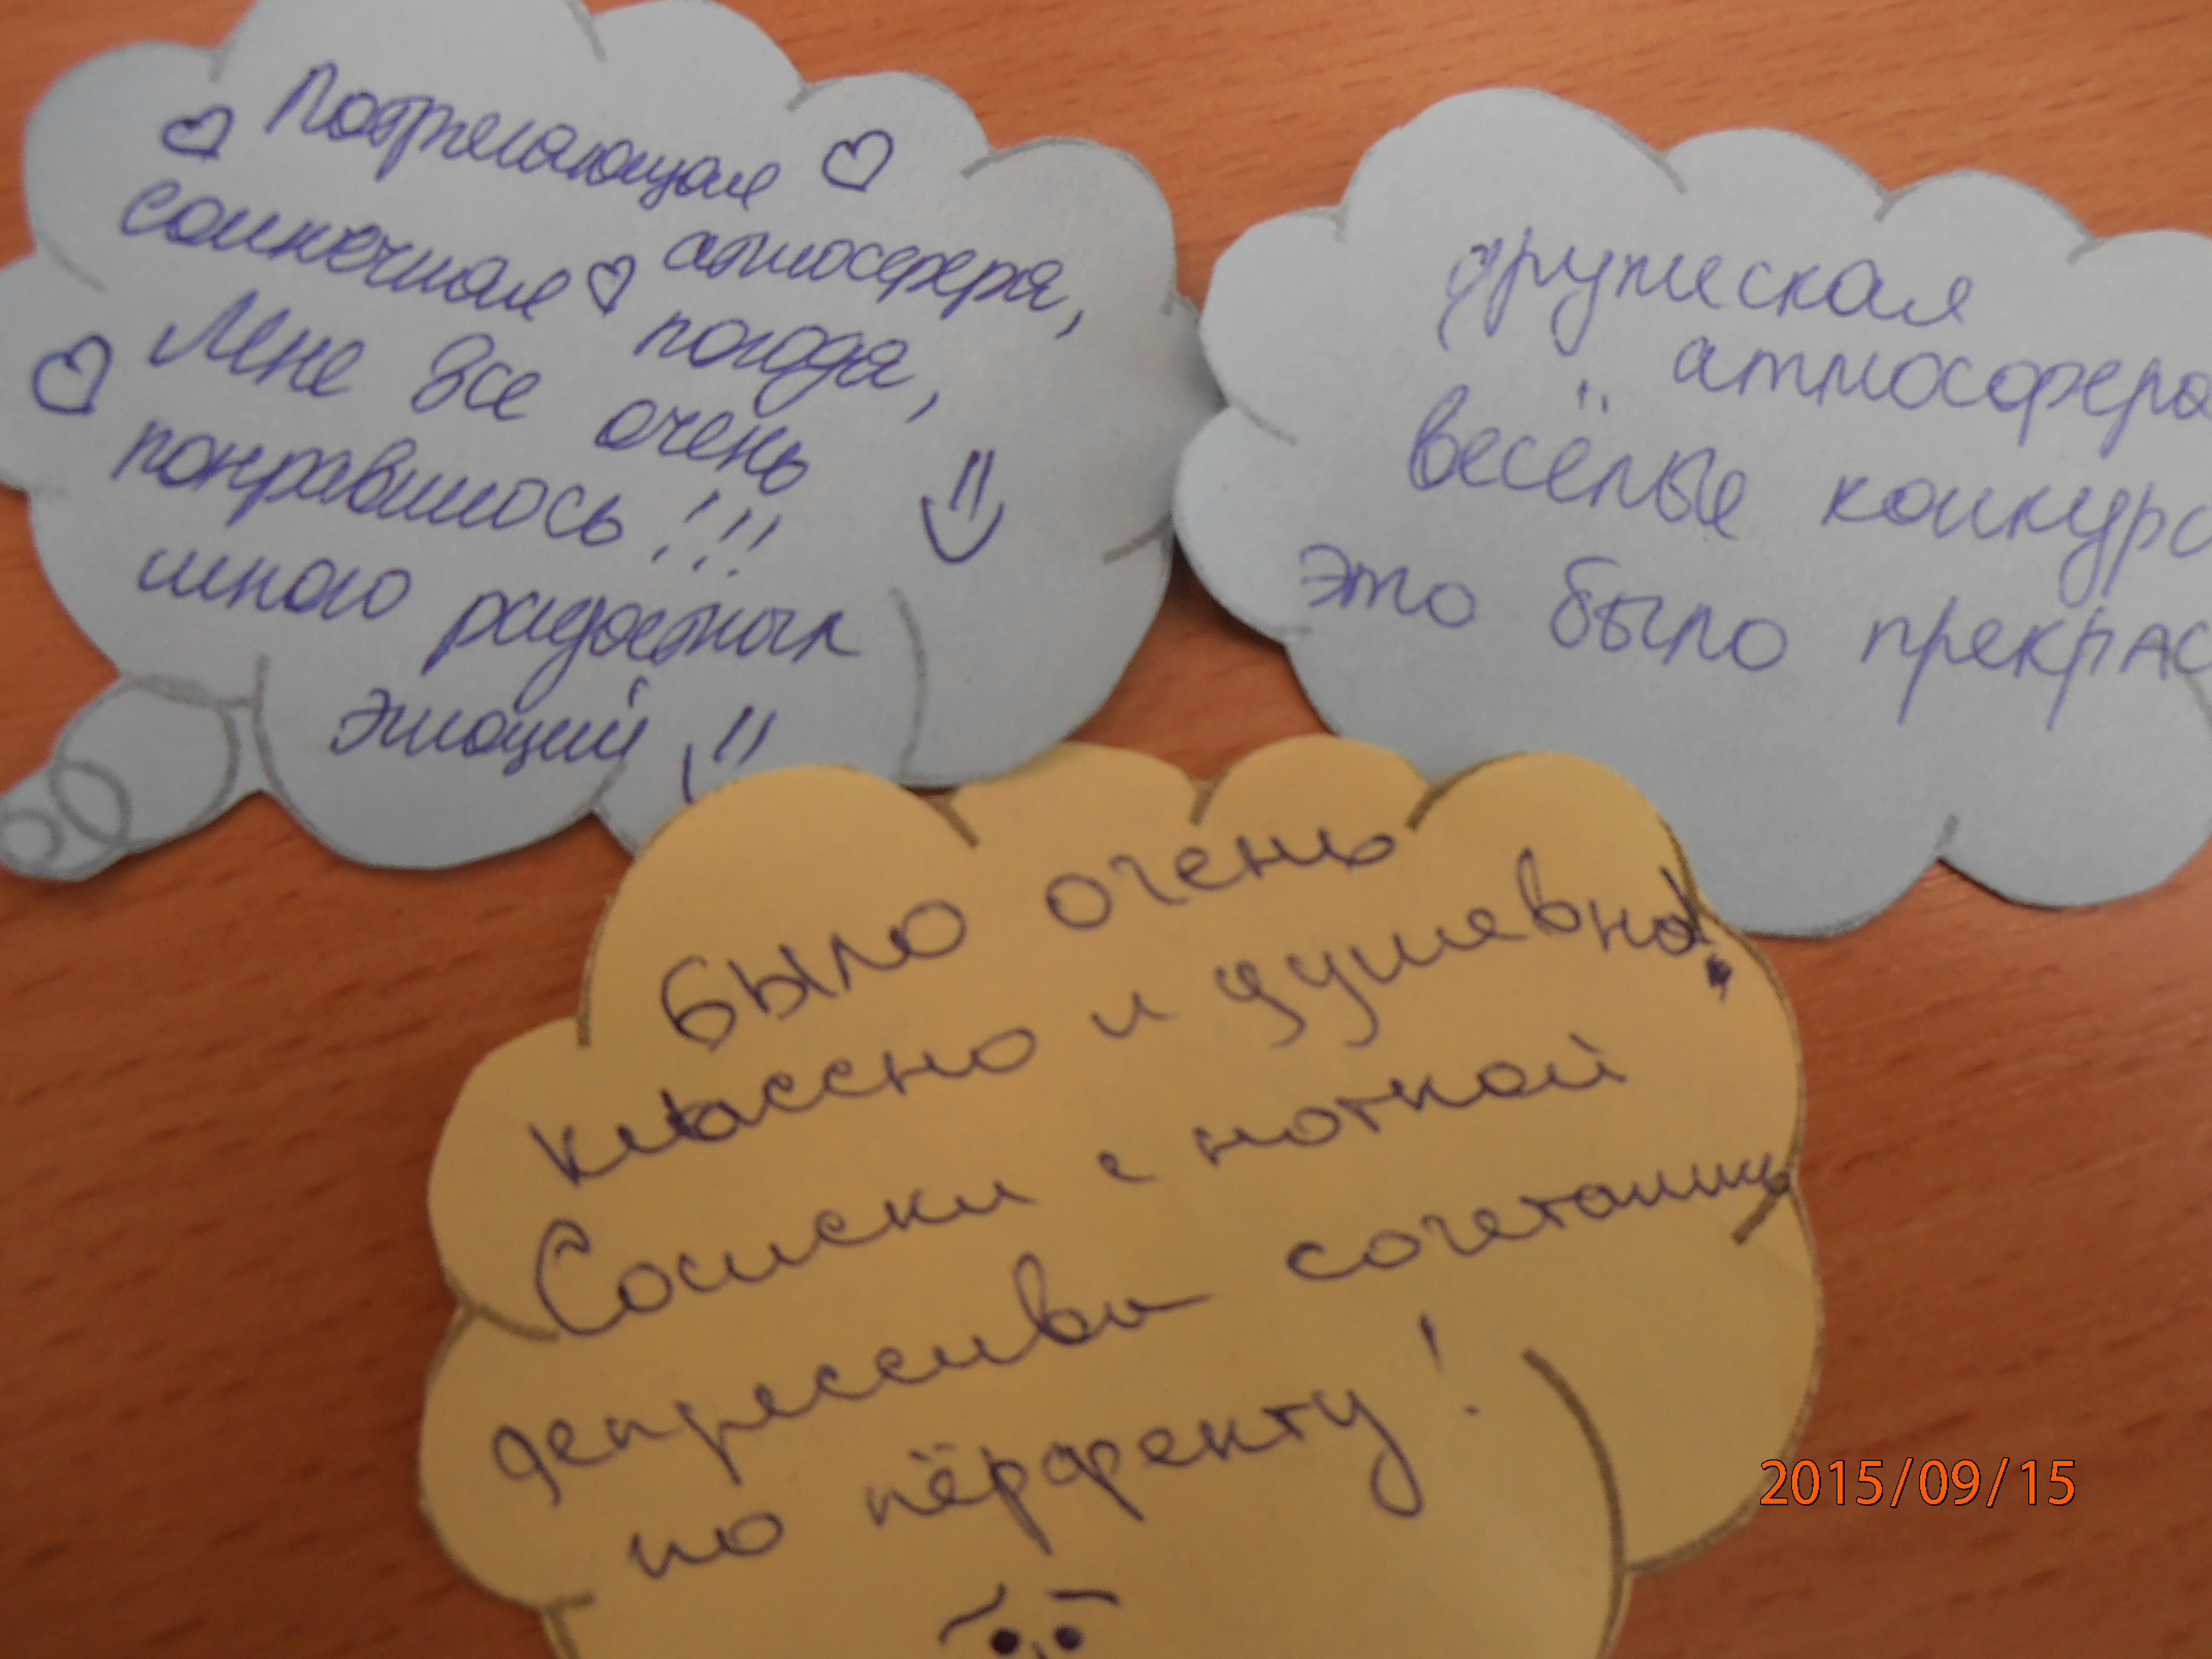 Потрясающая
атмосфера,
солнечная
погода,
Мне все очень
понравилось!!!
много радостных
эмоций !!
дружеская
атмосфера
весёлые конкурс
это было прекрас
Было очень
классно и душевно!
Сосиски с ноткой
депрессива сочетании
по пёрфекту!
2015/09/15